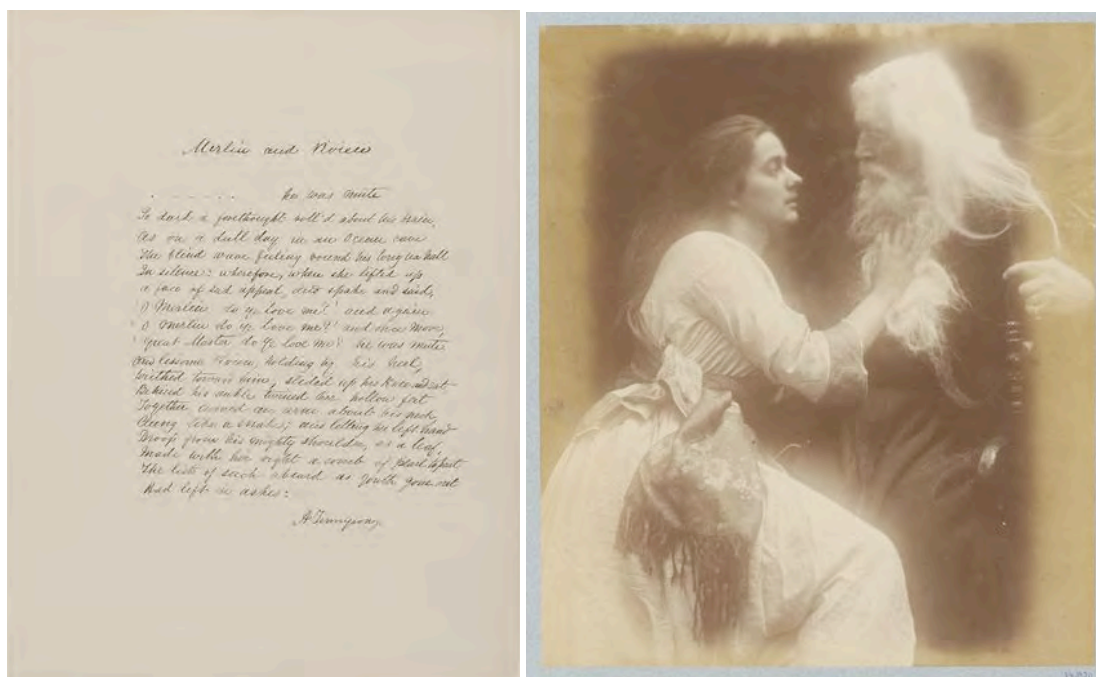 Merlin and Vivien
. - - - - - . he was mute
So dark a forethought roll'd about his brain,
As on a dull day in an Ocean cave
The blind wave feeling round his long sea hall
In silence: wherefore, when she lifted up
a face of sad appeal, and spake and said,
'O Merlin do ye love me?' and again
'O Merlin do ye love me?' and once more,
'Great Master do ye love me?' he was mute
And lissome Vivien, holding by his heel,
Writhed toward him, slided up his knee and sat
Behind his ankle twined her hollow feet
Together curved an arm about his neck,
Clung like a snake; and letting her left hand
Droop from his mighty shoulder, as a leaf,
Made with her right a comb of pearl to part
The lists of such a beard as youth gone out
Had left in ashes:
A Tennyson